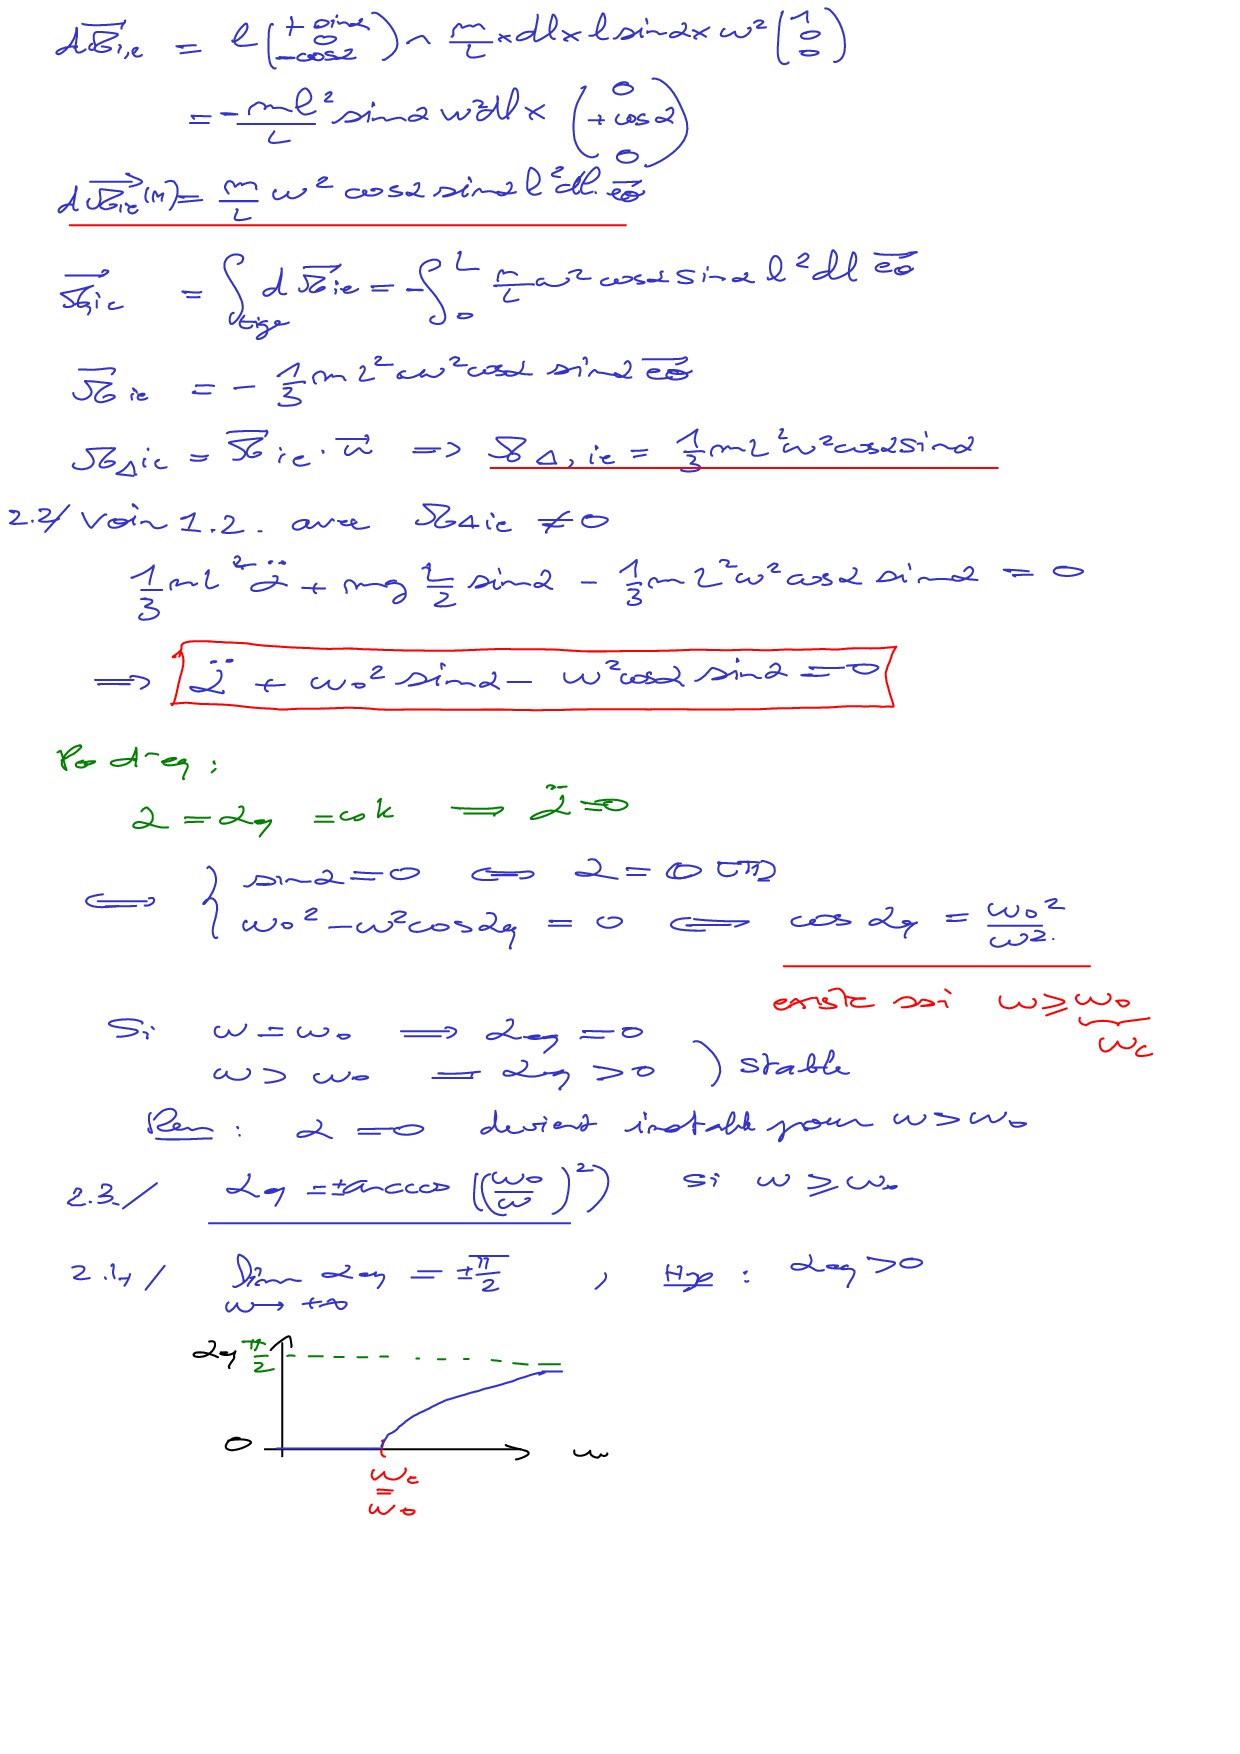 d𝓜⃗i,e = l (+ sinα 0 −cosα) ∧ m/L × dl × l sinα × ω² (1 0 0)
= − ml²/L sinα ω² dl × (0 + cosα 0)
d𝓜⃗ie(M) = m/L ω² cosα sinα l² dl. e⃗θ
𝓜⃗ie = ∫tige d𝓜⃗ie = − ∫₀ᴸ m/L ω² cosα sinα l² dl e⃗θ
𝓜⃗ie = − 1/3 m L² ω² cosα sinα e⃗θ
𝓜Δie = 𝓜⃗ie . u⃗ => 𝓜Δ,ie = 1/3 mL²ω²cosα sinα
2.2/ Voir 1.2. avec 𝓜Δie ≠ 0
1/3 mL² α̈ + mg L/2 sinα − 1/3 m L²ω² cosα sinα = 0
=> α̈ + ω₀² sinα − ω²cosα sinα = 0
Po d'eq :
α = αeq = cok => α̈ = 0
<=> { sinα = 0 <=> α = 0 [π]
ω₀² − ω²cosαeq = 0 <=> cos αeq = ω₀²/ω².
existe ssi ω ⩾ ω₀
ωc
Si ω = ω₀ => αeq = 0
ω > ω₀ => αeq > 0 ) stable
Rem : α = 0 devient instable pour ω > ω₀
2.3./ αeq = ± arccos ((ω₀/ω)²) si ω ⩾ ω₀
2.4/ lim αeq = ± π/2 , Hyp : αeq > 0
ω → +∞
αeq π/2
0 ω
ωc
=
ω₀